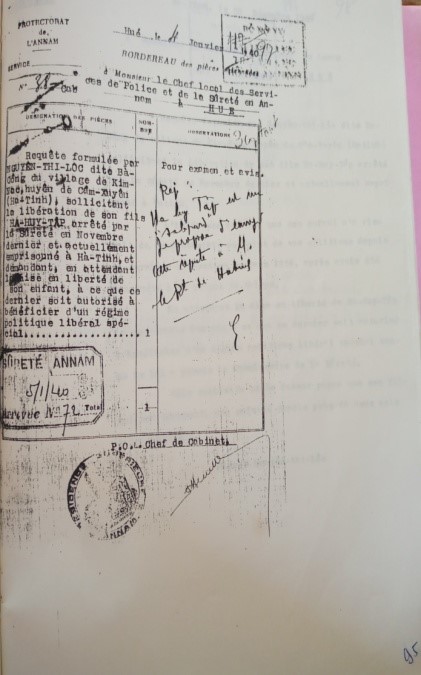 PROTECTORAT
de
L'ANNAM
SERVICE
Hué le 4 Janvier
BORDEREAU des pièces
à Monsieur le Chef local des Servi-
ces de Police et de la Sûreté en An-
nam à HUE
N° 38 Cab
DÉSIGNATION DES PIÈCES
NOM-
BRE
OBSERVATIONS
Requête formulée par
NGUYEN-THI-LÔC dite Bà-
Công du village de Kim-
Nac, huyên de Câm-Xuyên
(Ha-Tinh), sollicitent
la libération de son fils
HA-HUY-TÂP arrêté par
la Sûreté en Novembre
dernier et actuellement
emprisonné à Hà-Tinh, et
demandant, en attendant
la mise en liberté de
son enfant, à ce que ce
dernier soit autorisé à
bénéficier d'un régime
politique libéral spé-
cial. 1
Pour examen et avis.
Rép :
Ha huy Tập est un
Je propose d'envoyer
cette requête à M.
le Rt de
SURETÉ ANNAM
5/1/40
Arrivée N° 72
Total 1
P.O. Le Chef de Cabinet.
RESIDENCE SUPERIEURE
ANNAM
95